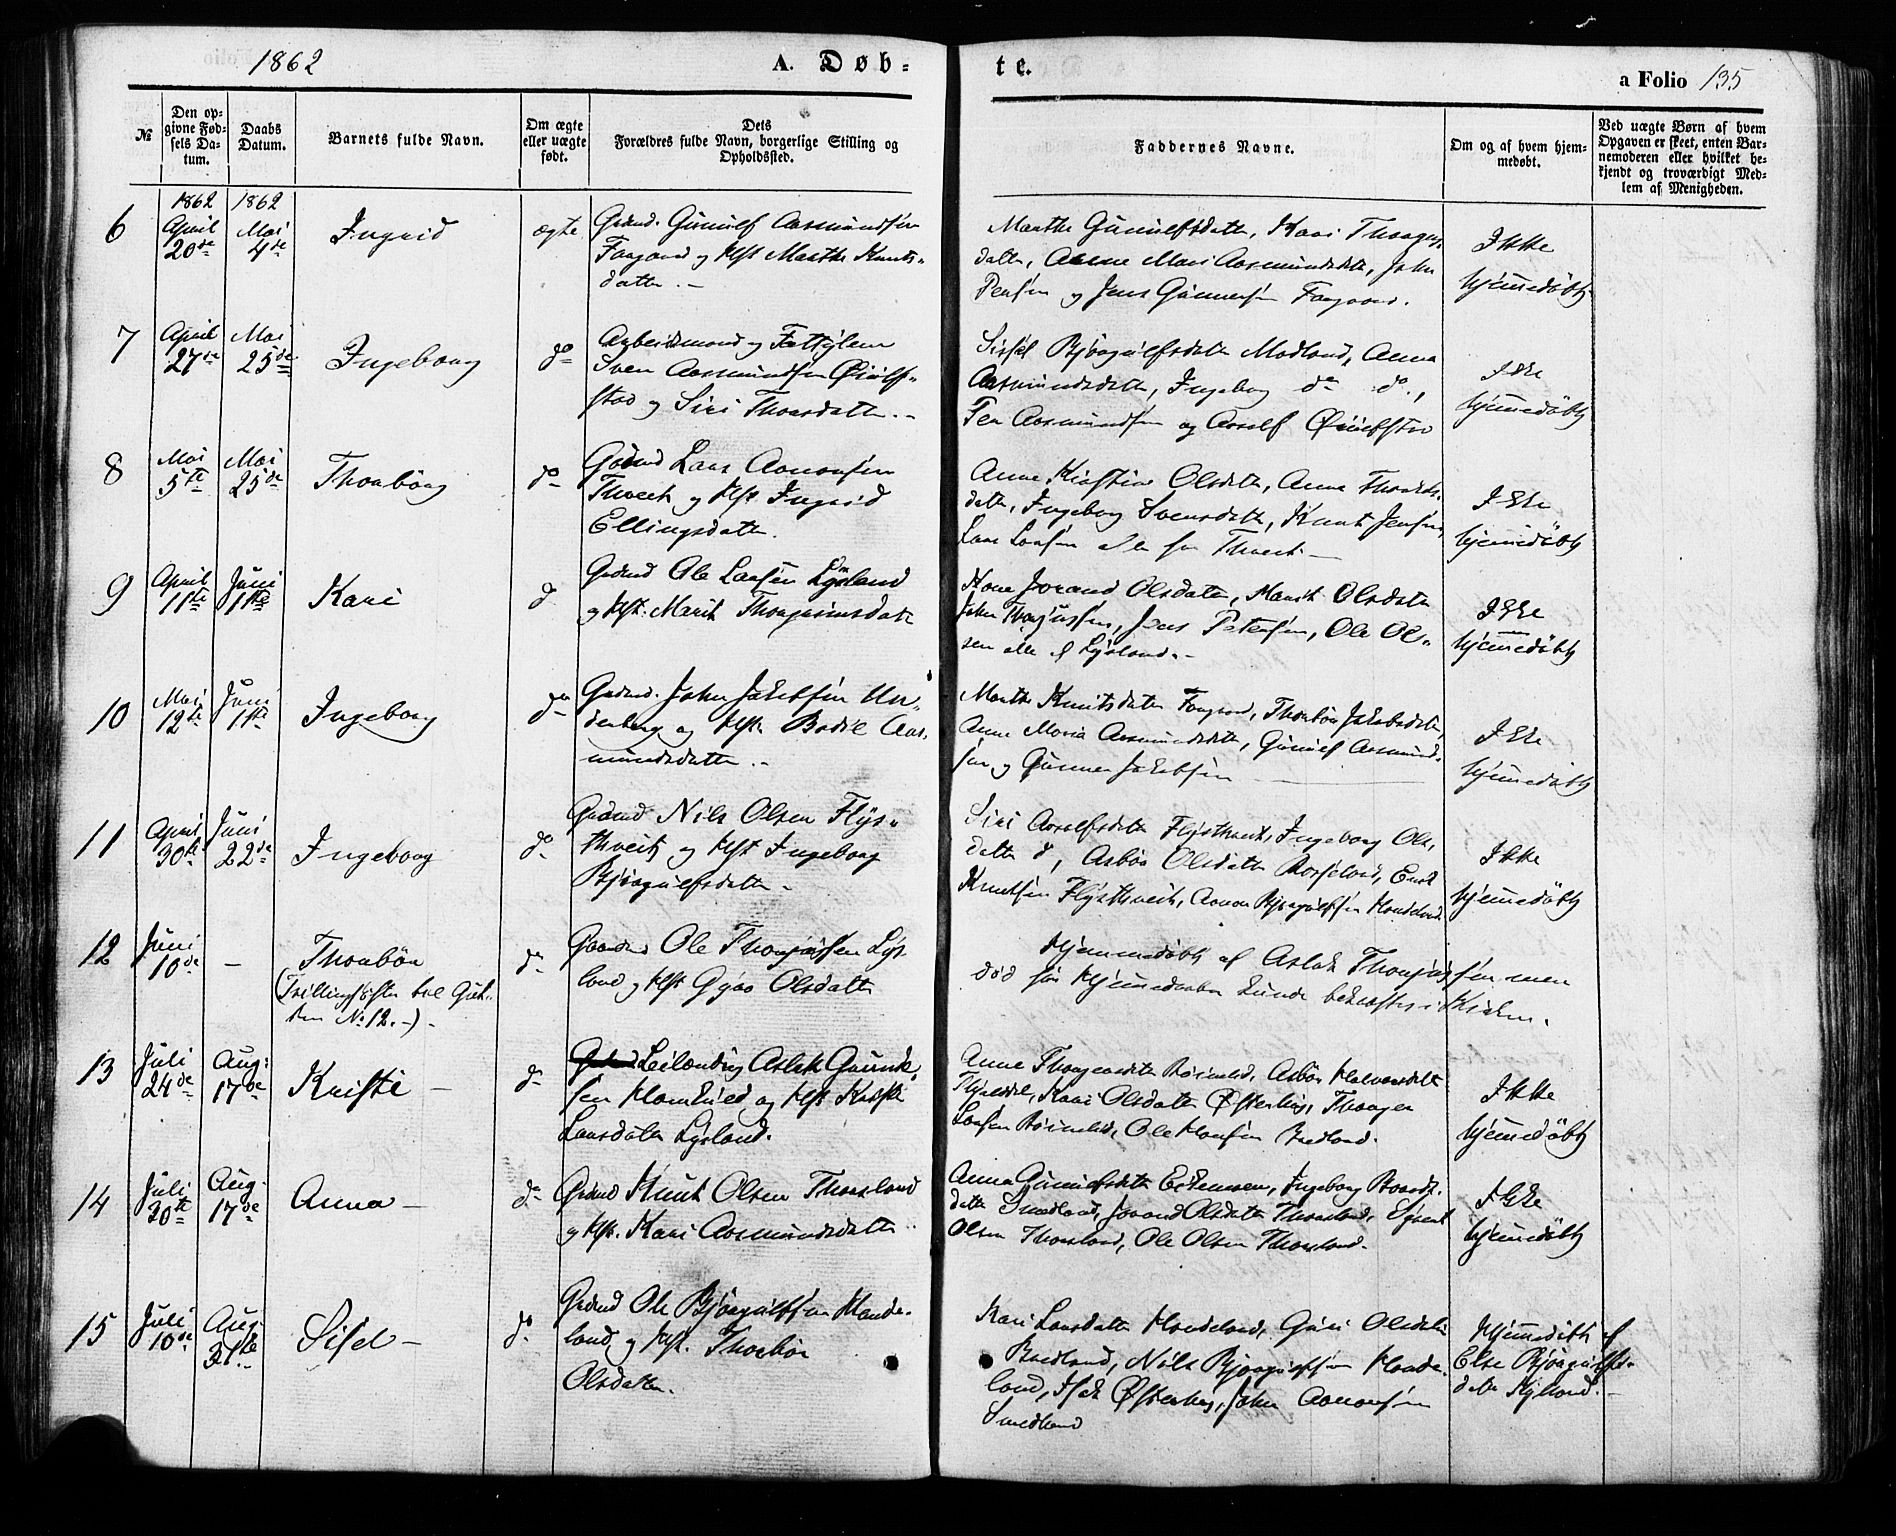 1862
A. Døb-
te.
a Folio 135
№
Den op-
givne Fød-
sels Da-
tum.
Daabs
Datum.
Barnets fulde Navn.
Om ægte
eller uægte
født.
Dets
Forældres fulde Navn, borgerlige Stilling og
Opholdssted.
Faddernes Navne.
Om og af hvem hjem-
medøbt.
Ved uægte Børn af hvem
Opgaven er skeet, enten Bar-
nemoderen eller hvilket be-
kjendt og troværdigt Med-
lem af Menigheden.
6
1862
April
20de
1862
Mai
4de
Ingrid
ægte
Grdmd. Gunulf Aasmundsen
Faagaard og Hst Marthe Knuts-
datter. -
Marthe Gunulfsdatter, Kari Thorges-
datter, Anne Mari Aasmundsdtt, John
og Jens Gunnersen Faagaard.
Ikke
hjemmedøbt
7
April
27de
Mai
25de
Ingeborg
do
Arbeidsmand og Fattiglem
Sven Aasmundsen Øiulf-
stad og Siri Thorsdatter. -
Sissel Bjørgulfsdatter Modland, Anna
Aasmundsdatter, Ingeborg do do,
Aasmundsen og Øiulfstad
Ikke
hjemmedøbt
8
Mai
5te
Mai
25de
Thorbørg
do
Grdmd Lars Aanonsen
Thveit og Hst. Ingrid
Ellingsdatter.
Anne Kirstine Olsdatter, Anna
datter, Ingeborg Svensdatter, Knut Jensen,
Lars Larsen alle fra Thveit. -
Ikke
hjemmedøbt
9
April
11te
Juni
1ste
Kari
do
Grdmd Ole Larsen Lysland
og Hst. Marit Thorgrimsdatt
Kone Jorand Olsdatter, Marit Olsdatter
John Thorjussen, Jens Petersen, Ole Ol-
sen alle af Lysland. -
Ikke
hjemmedøbt
10
Mai
12te
Juni
1ste
Ingeborg
do
Grdmd. John Jakobsen Un-
denberg og Hst. Bodil Aas-
mundsdatter. -
Marthe Knutsdatter Faagaard, Thorbør Jakobsdatter,
Anne Maria Aasmundsdatter, Gunulf Aasmund-
sen og Gunner Jakobsen
Ikke
hjemmedøbt
11
April
30te
Juni
22de
Ingeborg
do
Grdmd Nils Olsen Flys-
thveit og Hst Ingeborg
Bjørgulfsdatter -
Siri Aasulfsdatter Flysthveit, Ingeborg Ols-
datter do, Asbør Olsdatter Rosseland,
Knutsen Flysthveit, Aanon Bjørgulfsen Handeland
Ikke
hjemmedøbt
12
Juni
10de
-
Thorbør
(Trillingsøster til Gut-
ten No 12. -) -
do
Gaardmd Ole Thorjussen Lys-
land og Hst Gyro Olsdatter
Hjemmedøbt af Aslak Thorjussen men
død før Hjemmedaaben kunde bekræftes i Kirken.
13
Juli
24de
Aug:
17de
Kristi -
do
Leilænding Aslak Gunuk-
sen Homkned og Hst Kristi
Larsdatter Lysland.
Anne Thorgersdatter Asbør Halvorsdatt
Kari Olsdatter Østerhus, Thorger
Larsen Ole Hansen Bredland.
Ikke
hjemmedøbt
14
Juli
20te
Aug.
17de
Anna -
do
Grdmd Knut Olsen Thorsland
og Hst. Kari Aasmundsdatter
Anna Gunulfsdatter Ingeborg Baards-
datter Smedland, Jorand Olsdatter Thorsland,
Olsen Thorsland, Ole Olsen Thorsland.
Ikke
hjemmedøbt
15
Juli
10de
Aug.
31te
Sisel -
do
Grdmd Ole Bjørgulfsen Hande-
land og Hst. Thorbør
Olsdatter.
Kari Larsdatter Handeland, Guri Olsdatter
Bredland, Nils Bjørgulfsen Hande-
land, Isak Østerhus, John Aanonsen
Smedland
Hjemmedøbt af
Else Bjørgulfs-
datter Kylland. -